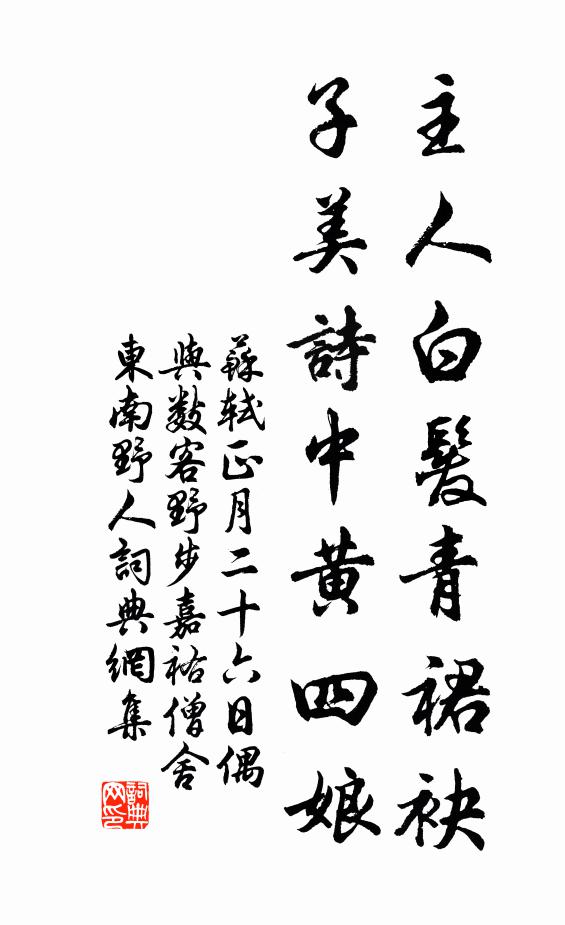 主人白髮青裙袂
子美詩中黃四娘
蘇軾正月二十六日偶
與數客野步嘉祐僧舍
東南野人詞典網集
詞典网印